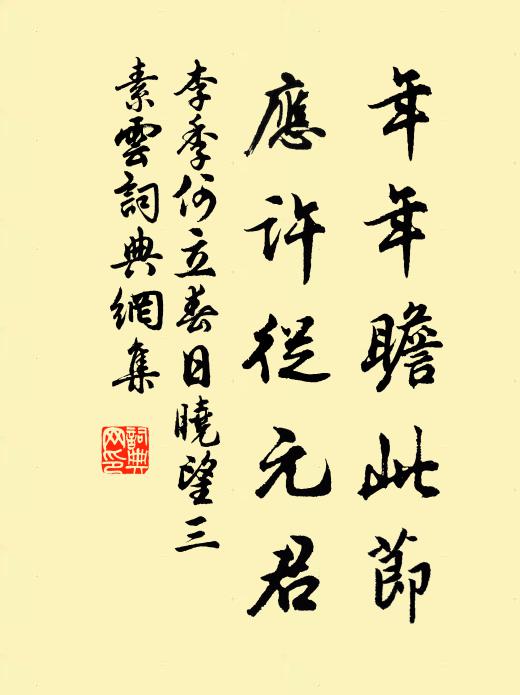 年年瞻此節
應許從元君
李季何立春日曉望三
素雲詞典網集
詞典
网印